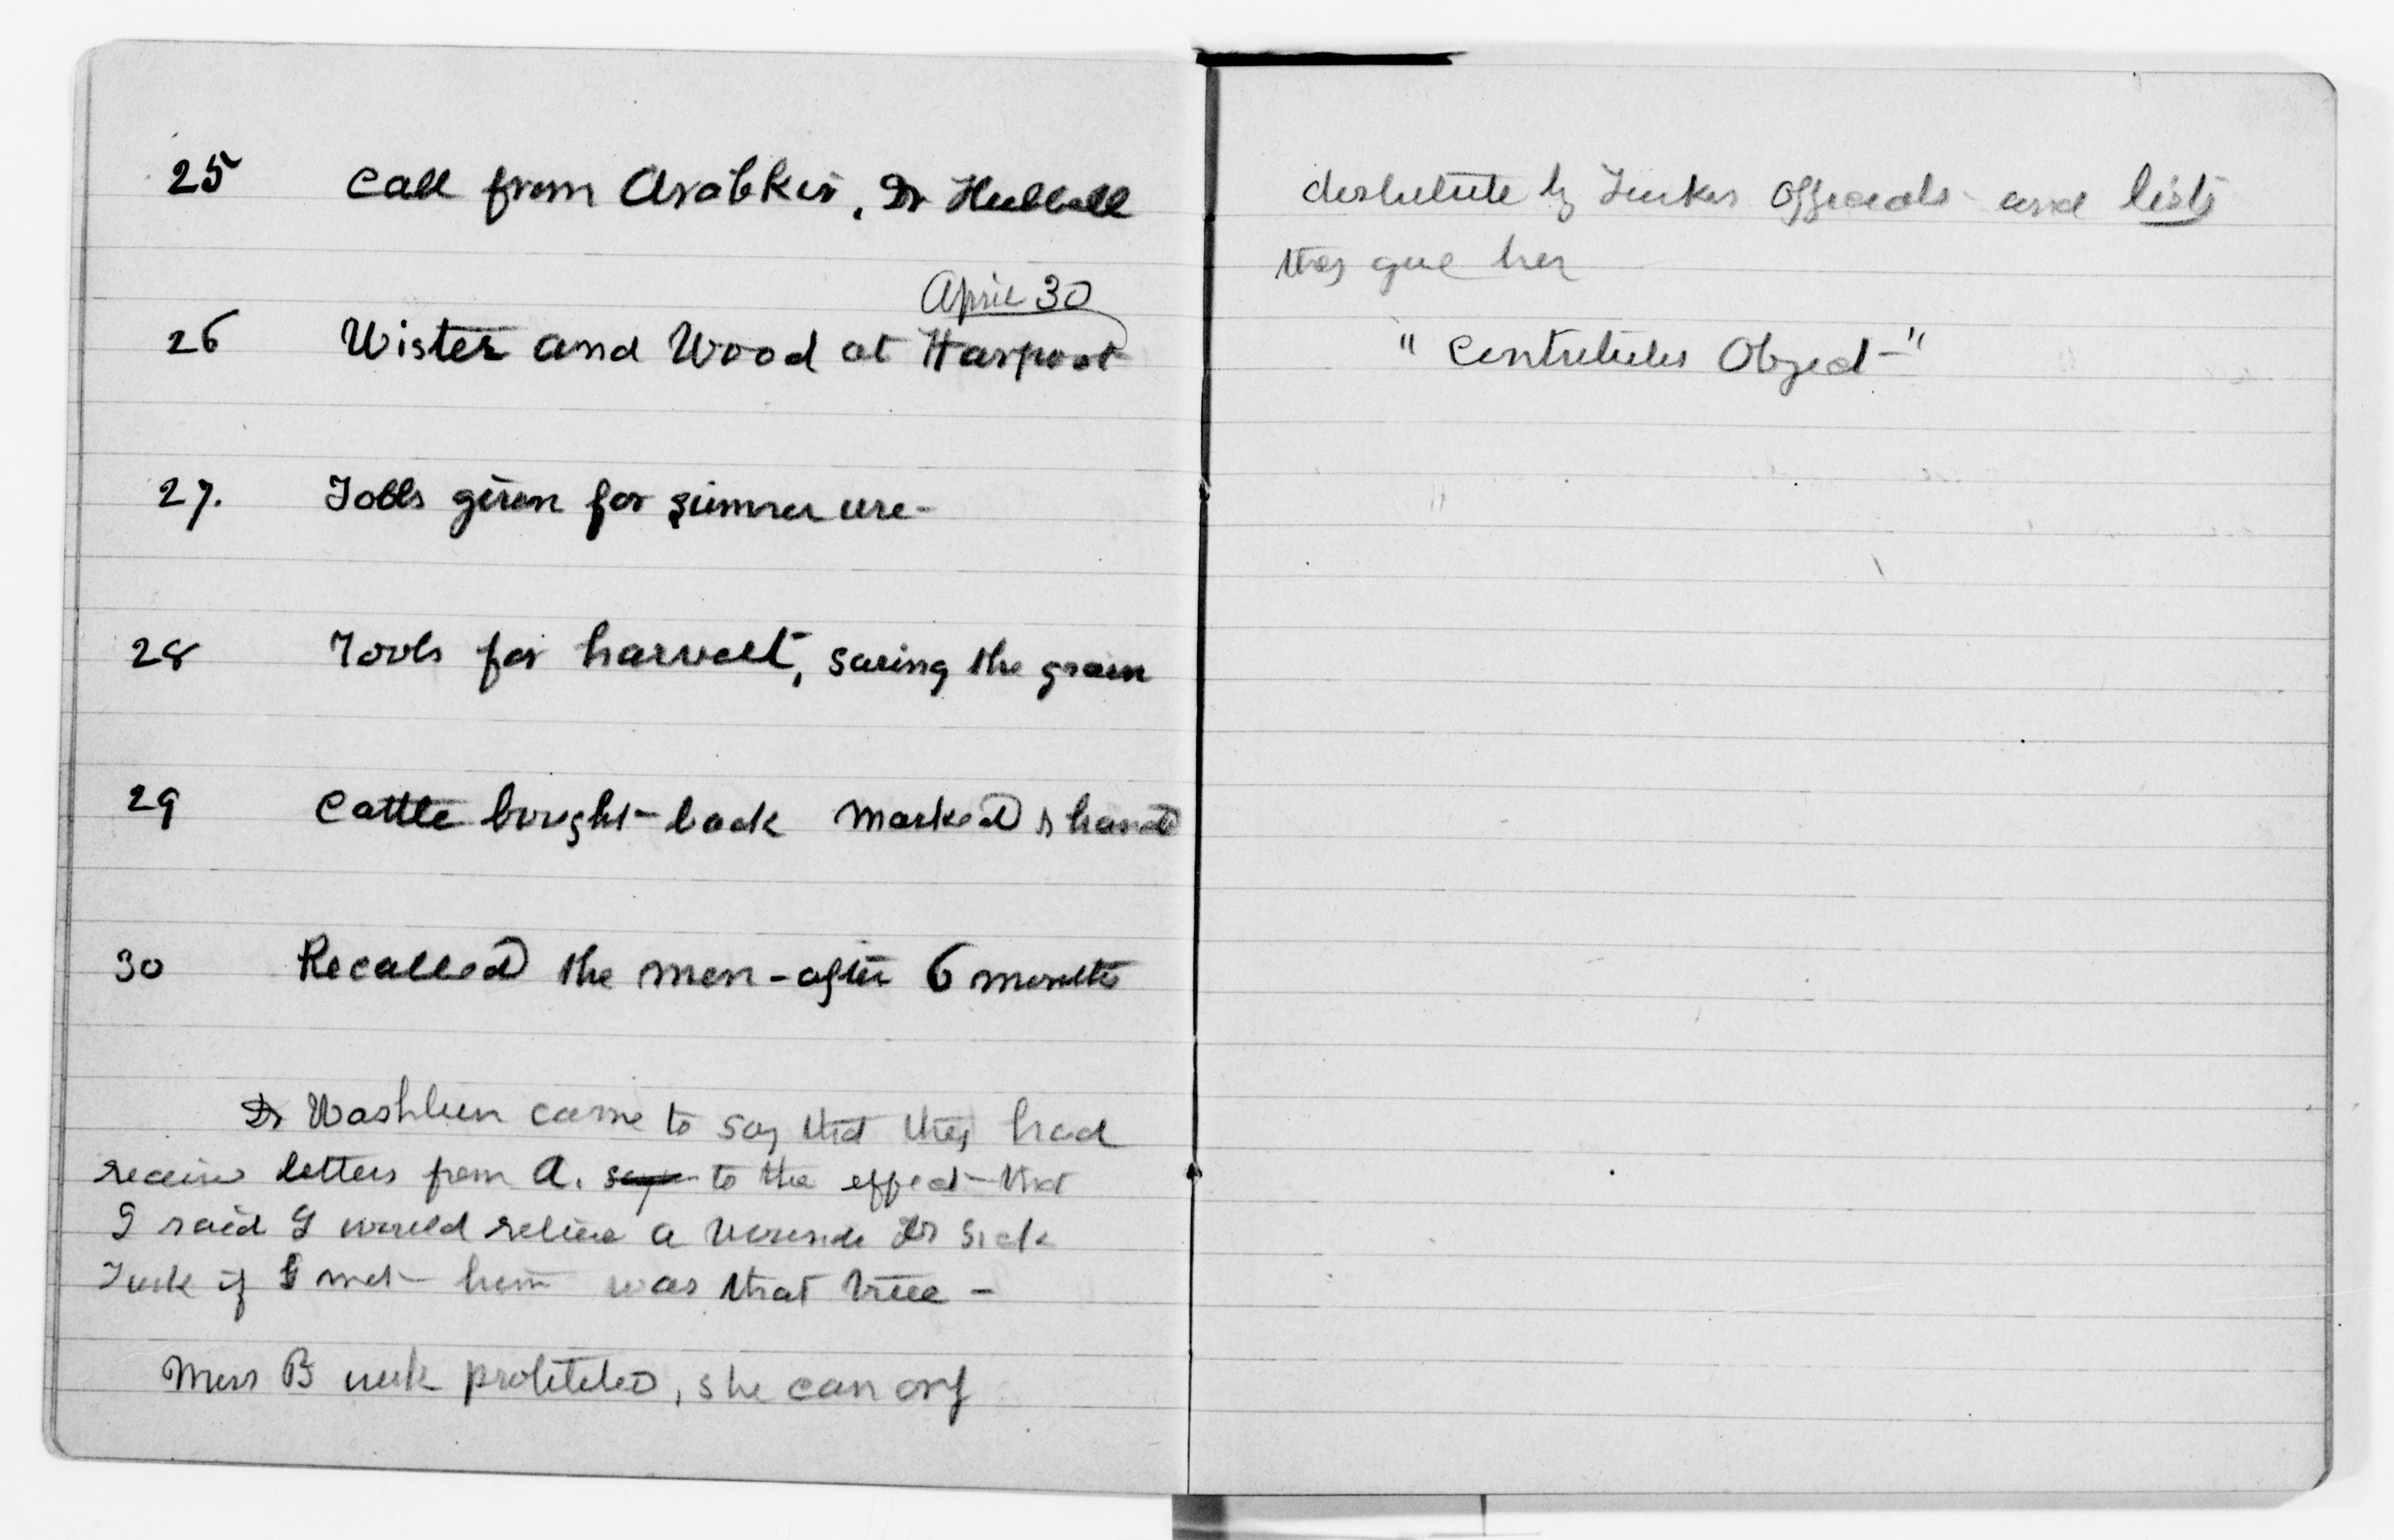 25 Call from Arabkir, Dr Hubbell
April 30
26 Wister and Wood at Harpoot
27. Tools given for summer use-
28 Tools for harvest, saving the grain
29 Cattle bought back marked &
30 Recalled the men - after 6 months
Dr Washburn came to say that they had
receive letters from A. to the effect that
I said I would relieve a or sick
Turk if I met him was that true -
Miss B , she can only
distribute by Turkis Officials and lists
they give her
" Contributers Object "